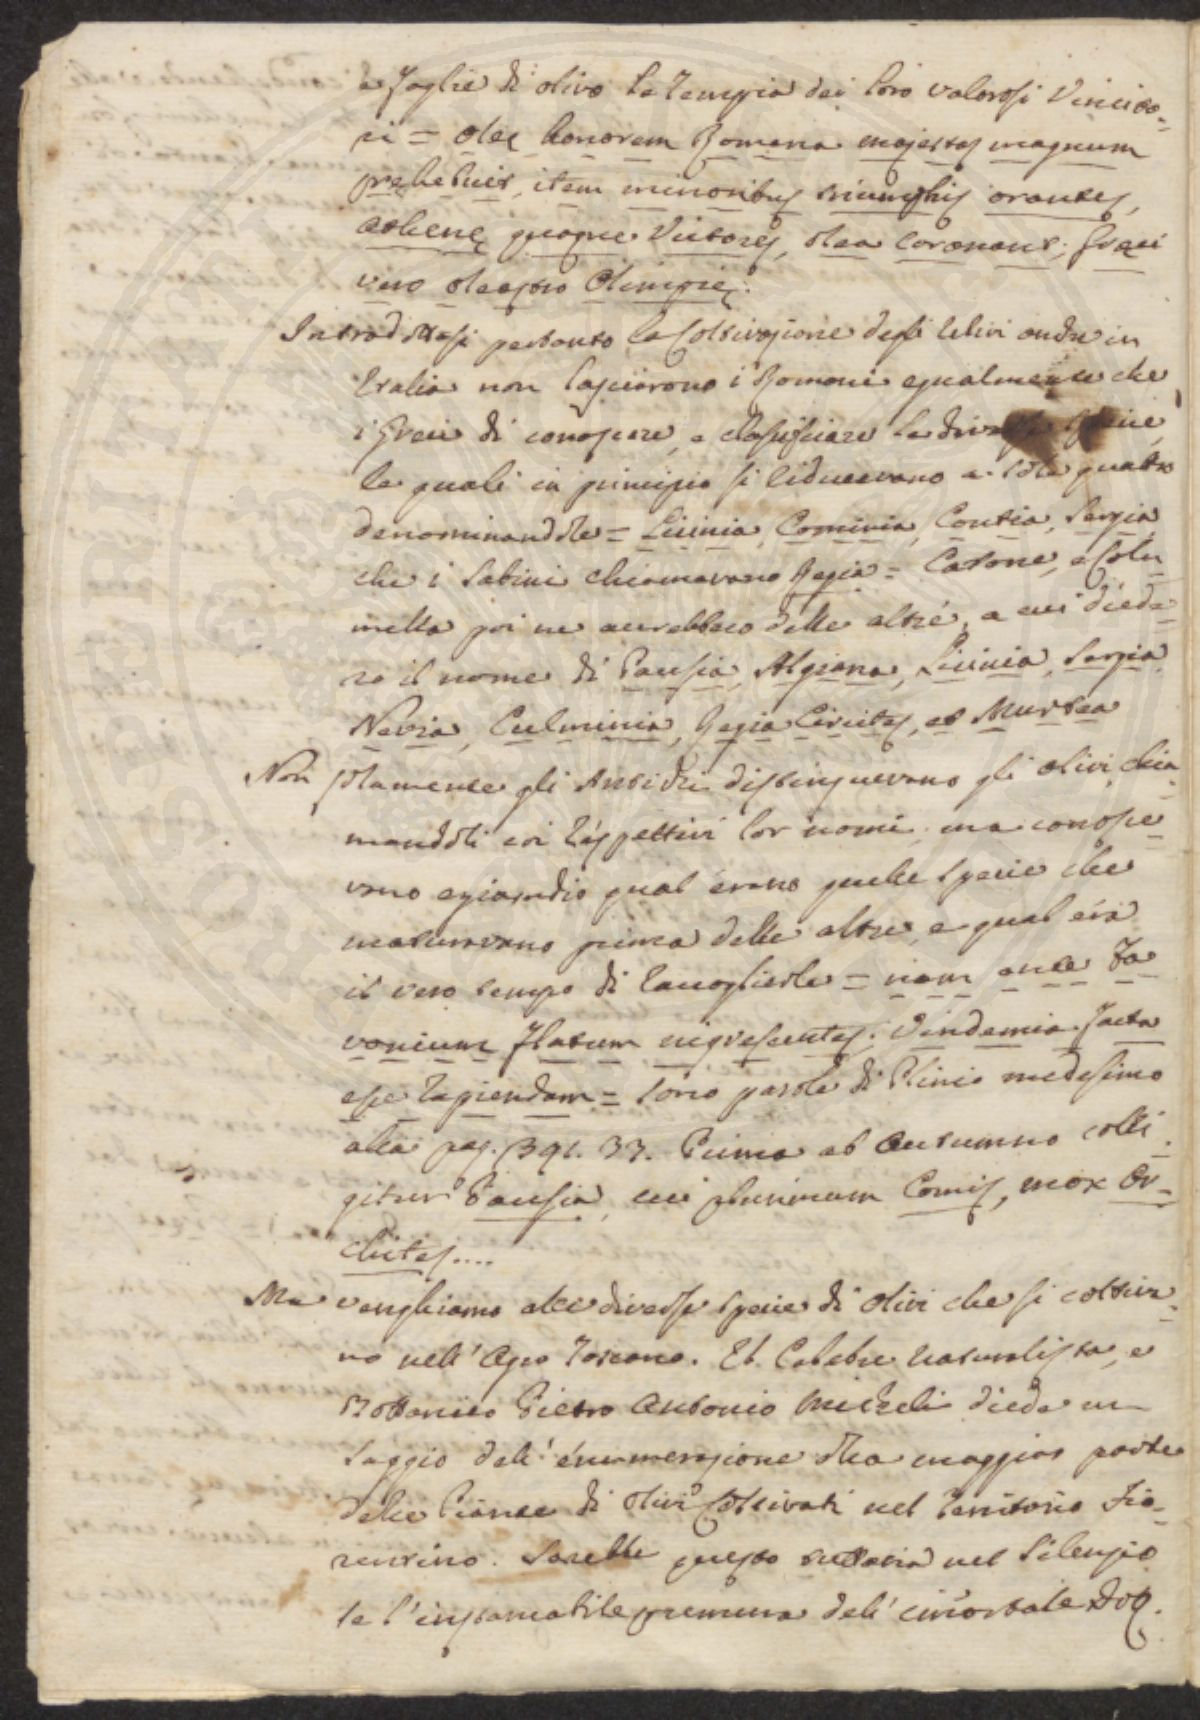 e foglie di olivo le Tempia dei loro valorosi Vincito-
ri = oleę honorem Romana majestas magnum
pręhebuit, item minoribus triumphis orantes,
athenę quoque Victores, olea coronant; Gręci
vero oleastro Olimpię:
Introdottasi pertanto la Coltivazione degli Ulivi anche in
Italia non lasciarono i Romani egualmente che
i Greci di conoscere, e classificare le diverse specie,
le quali in principio si riducevano a sole quattro
denominandole = Licinia, Cominia, Contia, Sergia
che i Sabini chiamavano Regia = Catone, e Colu-
mella poi ne accrebbero delle altre, a cui diede-
ro il nome di Pausia, Algiana, Licinia, Sergia,
Nevia, Culminia, Regia Circites, et Murtea
Non solamente gli Antichi distinguevano gli olivi chia-
mandoli coi rispettivi lor nomi, ma conosce-
vano eziandio qual'erano quelle specie che
maturavano prima delle altre, e qual era
il vero tempo di raccoglierle = nam ante Fa-
vonium flatum nigrescentes: Vindemia facta
esse rapiendam = sono parole di Plinio medesimo
alla pag. 391. 33. Prima ab Autumno colli-
gitur Pausia, cui plurimum Carnis, mox Or-
chites....
Ma venghiamo alle diverse specie di olivi che si coltiva-
no nell'Agro Toscano. Il Celebre Naturalista, e
Bottanico Pietro Antonio Micheli diede un
saggio dell'enumerazione della maggior parte
delle Piante di olivi Coltivati nel territorio Fio-
rentino. Sarebbe questo tuttavia nel Silenzio
se l'instancabile premura dell'immortale Dot.